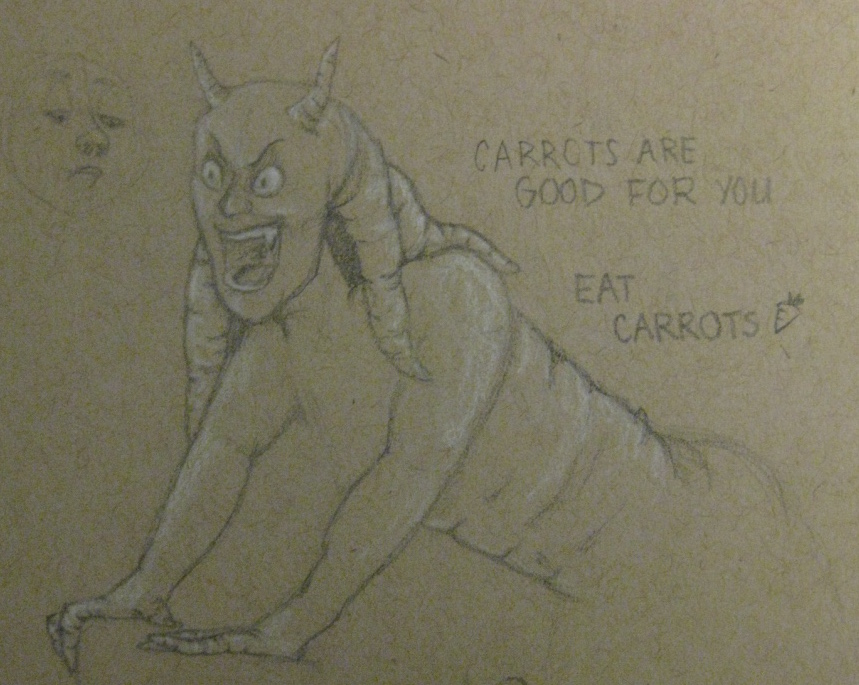 CARROTS ARE
GOOD FOR YOU
EAT
CARROTS